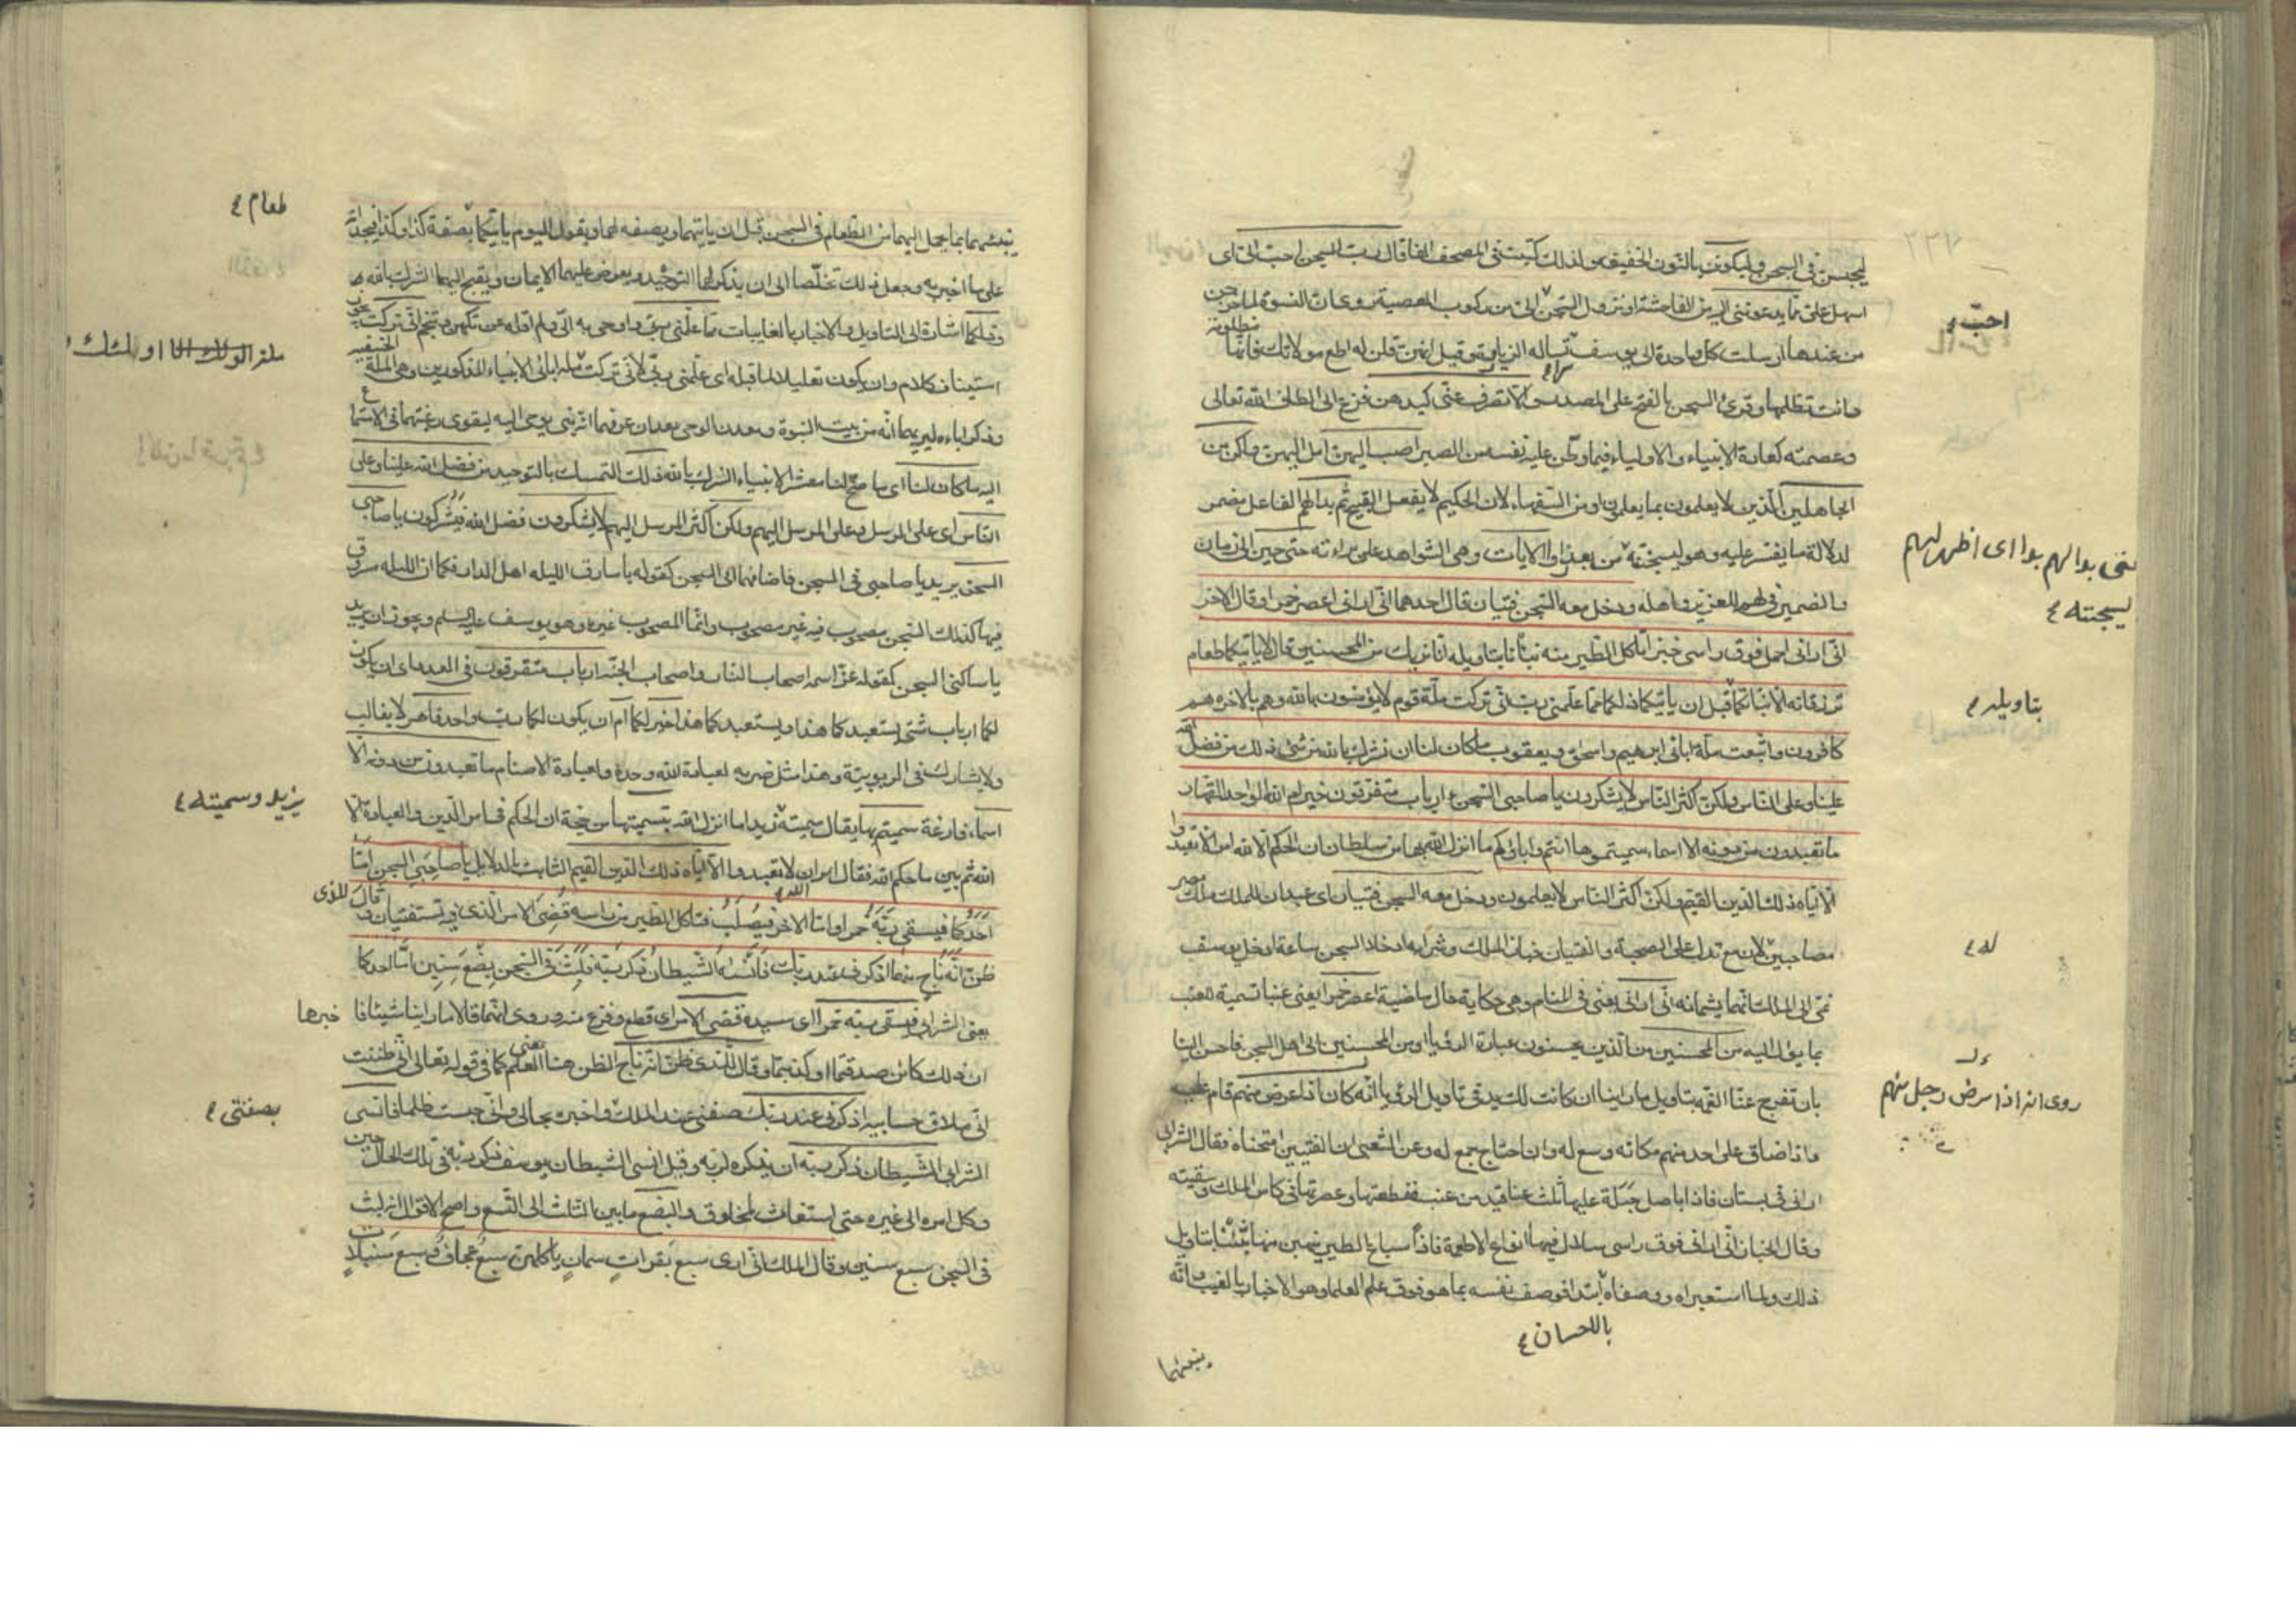 ليحبسن في السجن وليكونن بالنون الخفيفة ولذلك كتبت في المصحف الفا قال رب السجن احب الي اي
اسهل علي مما يدعونني اليه من الفاحشة او نزول السجن الي من ركوب المعصية روي ان النسوة لما خرجن
من عندها ارسلت كل واحدة الى يوسف تساله الزيارة وقيل انهن قلن له اطع مولاتك فانها مظلومة
وانت تظلمها وقرئ السجن بالفتح على المصدر والا تصرف عني كيدهن فزع الى الطاف الله تعالى
وعصمته كعادة الانبياء والاولياء فيما وطن عليه نفسه من الصبر اصب اليهن امل اليهن واكن من
الجاهلين الذين لا يعلمون بما يعلمون او من السفهاء لان الحكيم لا يفعل القبيح ثم بدا لهم الفاعل مضمر
لدلالة ما يفسر عليه وهو ليسجننه من بعد ما راوا الايات وهي الشواهد على براءته حتى حين الى زمان
والضمير في لهم للعزيز واهله ودخل معه السجن فتيان قال احدهما اني اراني اعصر خمرا وقال الاخر
اني اراني احمل فوق راسي خبزا تاكل الطير منه نبئنا بتاويله انا نريك من المحسنين قال لا ياتيكما طعام
ترزقانه الا نباتكما قبل ان ياتيكما ذلكما مما علمني ربي اني تركت ملة قوم لا يؤمنون بالله وهم بالاخرة هم
كافرون واتبعت ملة اباني ابرهيم واسحق ويعقوب ما كان لنا ان نشرك بالله من شئ ذلك من فضل الله
علينا وعلى الناس ولكن اكثر الناس لا يشكرون يا صاحبي السجن ء ارباب متفرقون خير ام الله الواحد القهار
ما تعبدون من دونه الا اسماء سميتموها انتم واباؤكم ما انزل الله بها من سلطان ان الحكم الا لله امر الا تعبدوا
الا اياه ذلك الدين القيم ولكن اكثر الناس لا يعلمون ودخل معه السجن فتيان اي عبدان للملك ملك مصر
مصاحبين لان مع تدل على الصحبة والفتيان خباز الملك وشرابيه ادخلا السجن ساعة ادخل يوسف
نمي الى الملك انهما يسمانه اني اراني يعني في المنام وهي حكاية حال ماضية اعصر خمرا يعني عنبا تسمية للعنب
بما يؤل اليه من المحسنين من الذين يحسنون عبارة الرؤيا او من المحسنين الى اهل السجن فاحسن الينا
بان تفرج عنا الغمة بتاويل ما راينا ان كانت لك يد في تاويل الرؤيا انه كان اذا مرض منهم قام عليه
واذا ضاق على احد منهم مكانه وسع له وان احتاج جمع له وعن الشعبي ان الفتيين امتحناه فقال الشرابي
اراني في بستان فاذا باصل حبلة عليها ثلث عناقيد من عنب فقطعتها وعصرتها في كاس الملك وسقيته
وقال الخباز اني اراني فوق راسي سلال فيها انواع الاطعمة فاذا سباع الطير ينهس منها نبئنا بتاويل
ذلك ولما استعبراه ووصفاه ابتدا فوصف نفسه بما هو فوق علم العلما وهو الاخبار بالغيب وانه
بالاحسان ع
ينبئهما
احب ع
ليسجننه ع
بتاويله ع
له ع
روى انه اذا مرض رجل منهم
ينبئهما بما يحمل اليهما من الطعام في السجن قبل ان ياتيهما ويصفه لهما ويقول اليوم ياتيكما بصفة كذا وكذا فيجدانه
على ما اخبر به وجعل ذلك تخلصا الى ان يذكر لهما التوحيد ويعرض عليهما الايمان ويقبح اليهما الشرك بالله
ذلكما اشارة الى التاويل والاخبار بالغايبات مما علمني ربي واوحى به الي ولم اقله عن تكهن وتنجم اني تركت يجوز
استيناف كلام وان يكون تعليلا لما قبله اي علمني ربي لاني تركت ملة اباني الانبياء المذكورين وهي الملة الحنيفية
وذكر اباءه ليريهما انه من بيت النبوة ومعدن الوحي بعد ان عرفهما انه نبي يوحى اليه ليقوى رغبتهما في الاستماع
اليه ما كان لنا اي ما صح لنا معشر الانبياء الشرك بالله ذلك التمسك بالتوحيد من فضل الله علينا وعلى
الناس اي على الرسل وعلى المرسل اليهم ولكن اكثر المرسل اليهم لا يشكرون فضل الله فيشركون يا صاحبي
السجن يريد يا صاحبي في السجن فاضافهما الى السجن كقوله يا سارق الليله اهل الدار فكما ان الليله مسروق
فيها كذلك السجن مصحوب فيه غير مصحوب وانما المصحوب غيره وهو يوسف عليه السلم ويجوز ان يريد
يا ساكني السجن كقوله عز اسمه اصحاب النار واصحاب الجنة ارباب متفرقون في العدد اي ان يكون
لكما ارباب شتى يستعبدكما هذا ويستعبدكما هذا خير لكما ام ان يكون لكما رب واحد قاهر لا يغالب
ولا يشارك في الربوبية وهذا مثل ضربه لعبادة الله وحده ولعبادة الاصنام ما تعبدون من دونه الا
اسماء فارغة سميتم بها يقال سميته زيدا ما انزل الله بتسميتها من حجة ان الحكم في امر الدين والعبادة الا
لله ثم بين ما حكم الله فقال امر ان لا تعبدوا الا اياه ذلك الدين القيم الثابت بالدلايل يا صاحبي السجن اما
احدكما فيسقي ربه خمرا واما الاخر فيصلب فتاكل الطير من راسه قضي الامر الذي فيه تستفتيان وقال للذي
ظن انه ناج منهما اذكرني عند ربك فانساه الشيطان ذكر ربه فلبث في السجن بضع سنين اما احدكما
يعني الشرابي فيسقي ربه خمرا اي سيده قضي الامر اي قطع وفرغ منه وروي انهما قالا ما راينا شيئا فاخبرهما
ان ذلك كائن صدقتما او كذبتما وقال للذي ظن انه ناج الظن هنا بمعنى العلم كما في قوله تعالى اني ظننت
اني ملاق حسابيه اذكرني عند ربك صفني عند الملك واخبره بحالي واني حبست ظلما فانسى
الشرابي الشيطان ذكر ربه ان يذكره لربه وقيل انسى الشيطان يوسف ذكر ربه في تلك الحال حين
وكل امره الى غيره حتى استغاث بمخلوق والبضع ما بين الثلث الى التسع واصح الاقوال انه لبث
في السجن سبع سنين وقال الملك اني ارى سبع بقرات سمان ياكلهن سبع عجاف وسبع سنبلات
طعام ع
يزيد وسميته ع
بصفتي ع